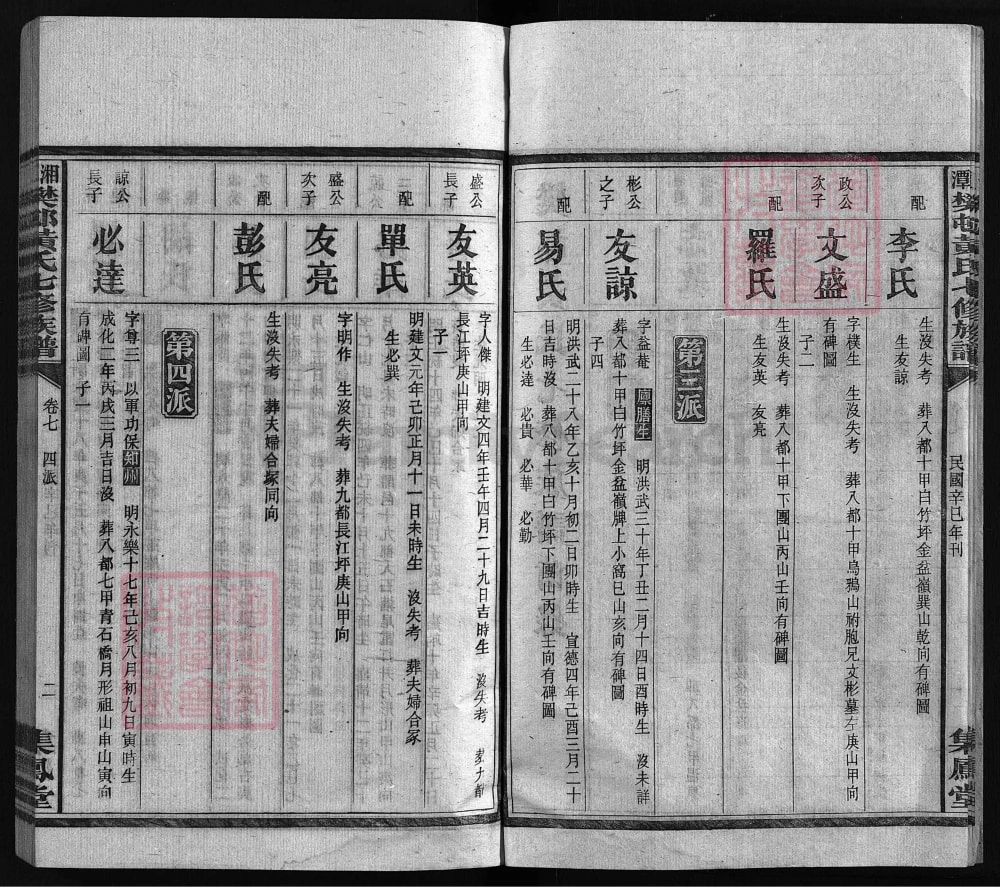 民國辛巳年刊
集鳳堂
配
李氏
生沒失考 葬八都十甲白竹坪金盆嶺巽山乾向有碑圖
生友諒
政公
次子
文盛
字樸生 生沒失考 葬八都十甲烏鴉山祔胞兄文彬墓左庚山甲向
有碑圖
子二
配
羅氏
生沒失考 葬八都十甲下團山丙山壬向有碑圖
生友英 友亮
第三派
彬公
之子
友諒
字益庵 廩膳生 明洪武三十年丁丑二月十四日酉時生 沒未詳
葬八都十甲白竹坪金盆嶺牌上小窩巳山亥向有碑圖
子四
配
易氏
明洪武二十八年乙亥十月初二日卯時生 宣德四年己酉三月二十
日吉時沒 葬八都十甲白竹坪下團山丙山壬向有碑圖
生必達 必貴 必華 必勤
盛公
長子
友英
字人傑 明建文四年壬午四月二十九日吉時生 沒失考 葬九都
長江坪庚山甲向
子一
配
單氏
明建文元年己卯正月十一日未時生 沒失考 葬夫婦合冢
生必巽
盛公
次子
友亮
字明作 生沒失考 葬九都長江坪庚山甲向
配
彭氏
生沒失考 葬夫婦合塚同向
第四派
諒公
長子
必達
字尊三 以軍功保知州 明永樂十七年己亥八月初九日寅時生
成化二年丙戌三月吉日沒 葬八都七甲青石橋月形祖山申山寅向
有碑圖 子一
黃氏七修族譜
卷七 四派
二
集鳳堂